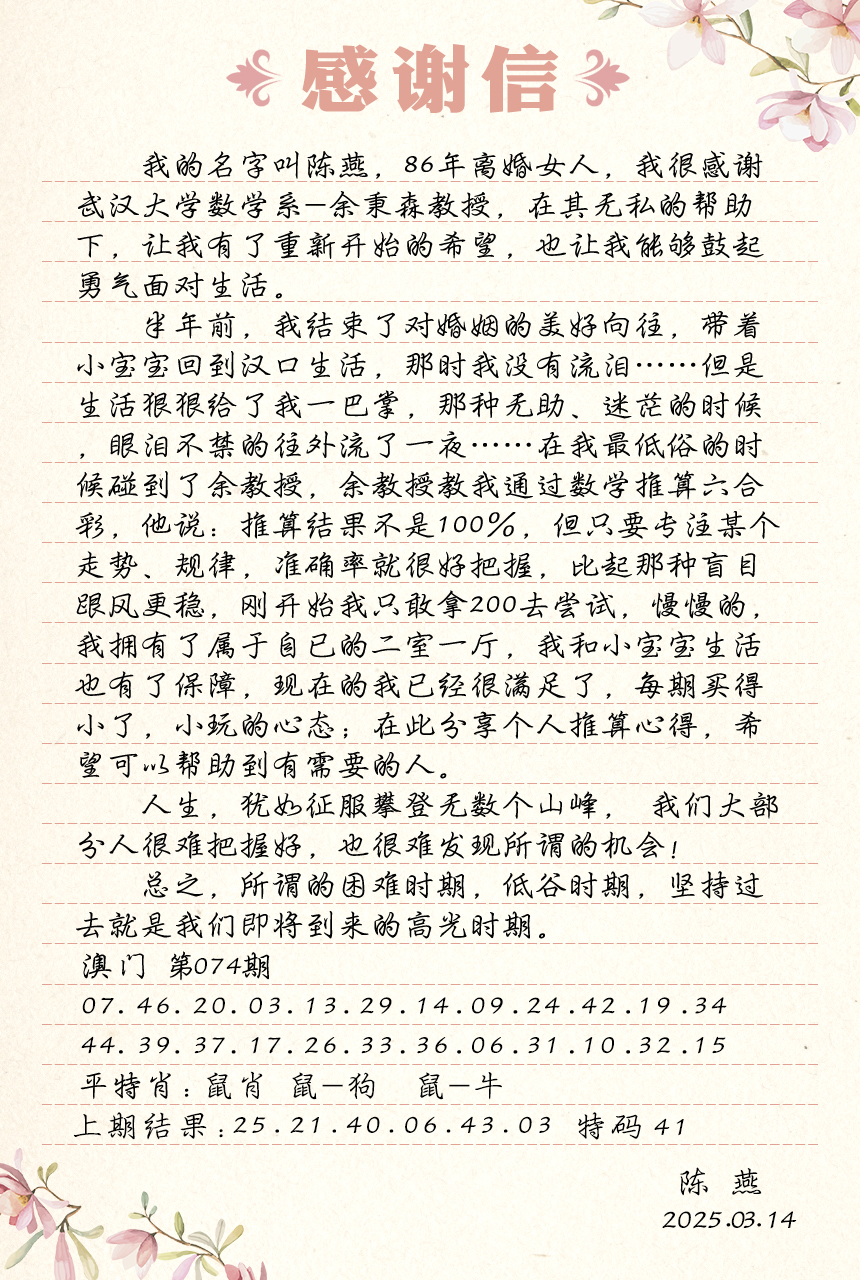 感谢信
我的名字叫陈燕，86年离婚女人，我很感谢
武汉大学数学系—余秉森教授，在其无私的帮助
下，让我有了重新开始的希望，也让我能够鼓起
勇气面对生活。
半年前，我结束了对婚姻的美好向往，带着
小宝宝回到汉口生活，那时我没有流泪……但是
生活狠狠给了我一巴掌，那种无助、迷茫的时候
，眼泪不禁的往外流了一夜……在我最低俗的时
候碰到了余教授，余教授教我通过数学推算六合
彩，他说：推算结果不是100%，但只要专注某个
走势、规律，准确率就很好把握，比起那种盲目
跟风更稳，刚开始我只敢拿200去尝试，慢慢的，
我拥有了属于自已的二室一厅，我和小宝宝生活
也有了保障，现在的我已经很满足了，每期买得
小了，小玩的心态；在此分享个人推算心得，希
望可以帮助到有需要的人。
人生，犹如征服攀登无数个山峰， 我们大部
分人很难把握好，也很难发现所谓的机会！
总之，所谓的困难时期，低谷时期，坚持过
去就是我们即将到来的高光时期。
澳门 第074期
07.46.20.03.13.29.14.09.24.42.19.34
44.39.37.17.26.33.36.06.31.10.32.15
平特肖：鼠肖 鼠—狗 鼠—牛
上期结果：25.21.40.06.43.03 特码 41
陈 燕
2025.03.14